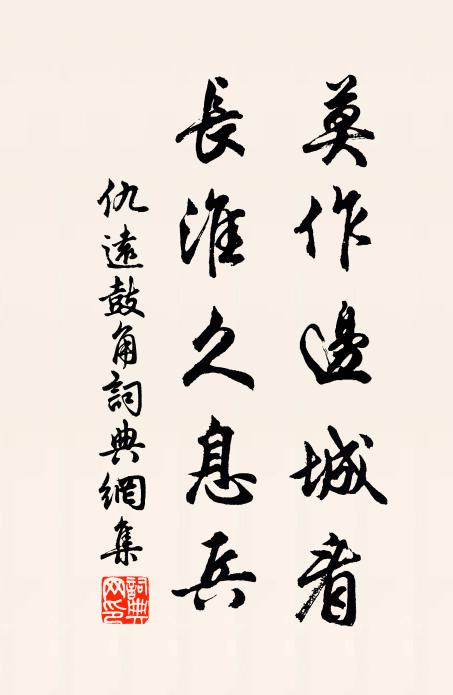 莫作邊城看
長淮久息兵
仇遠鼓角詞典網集
詞典網印